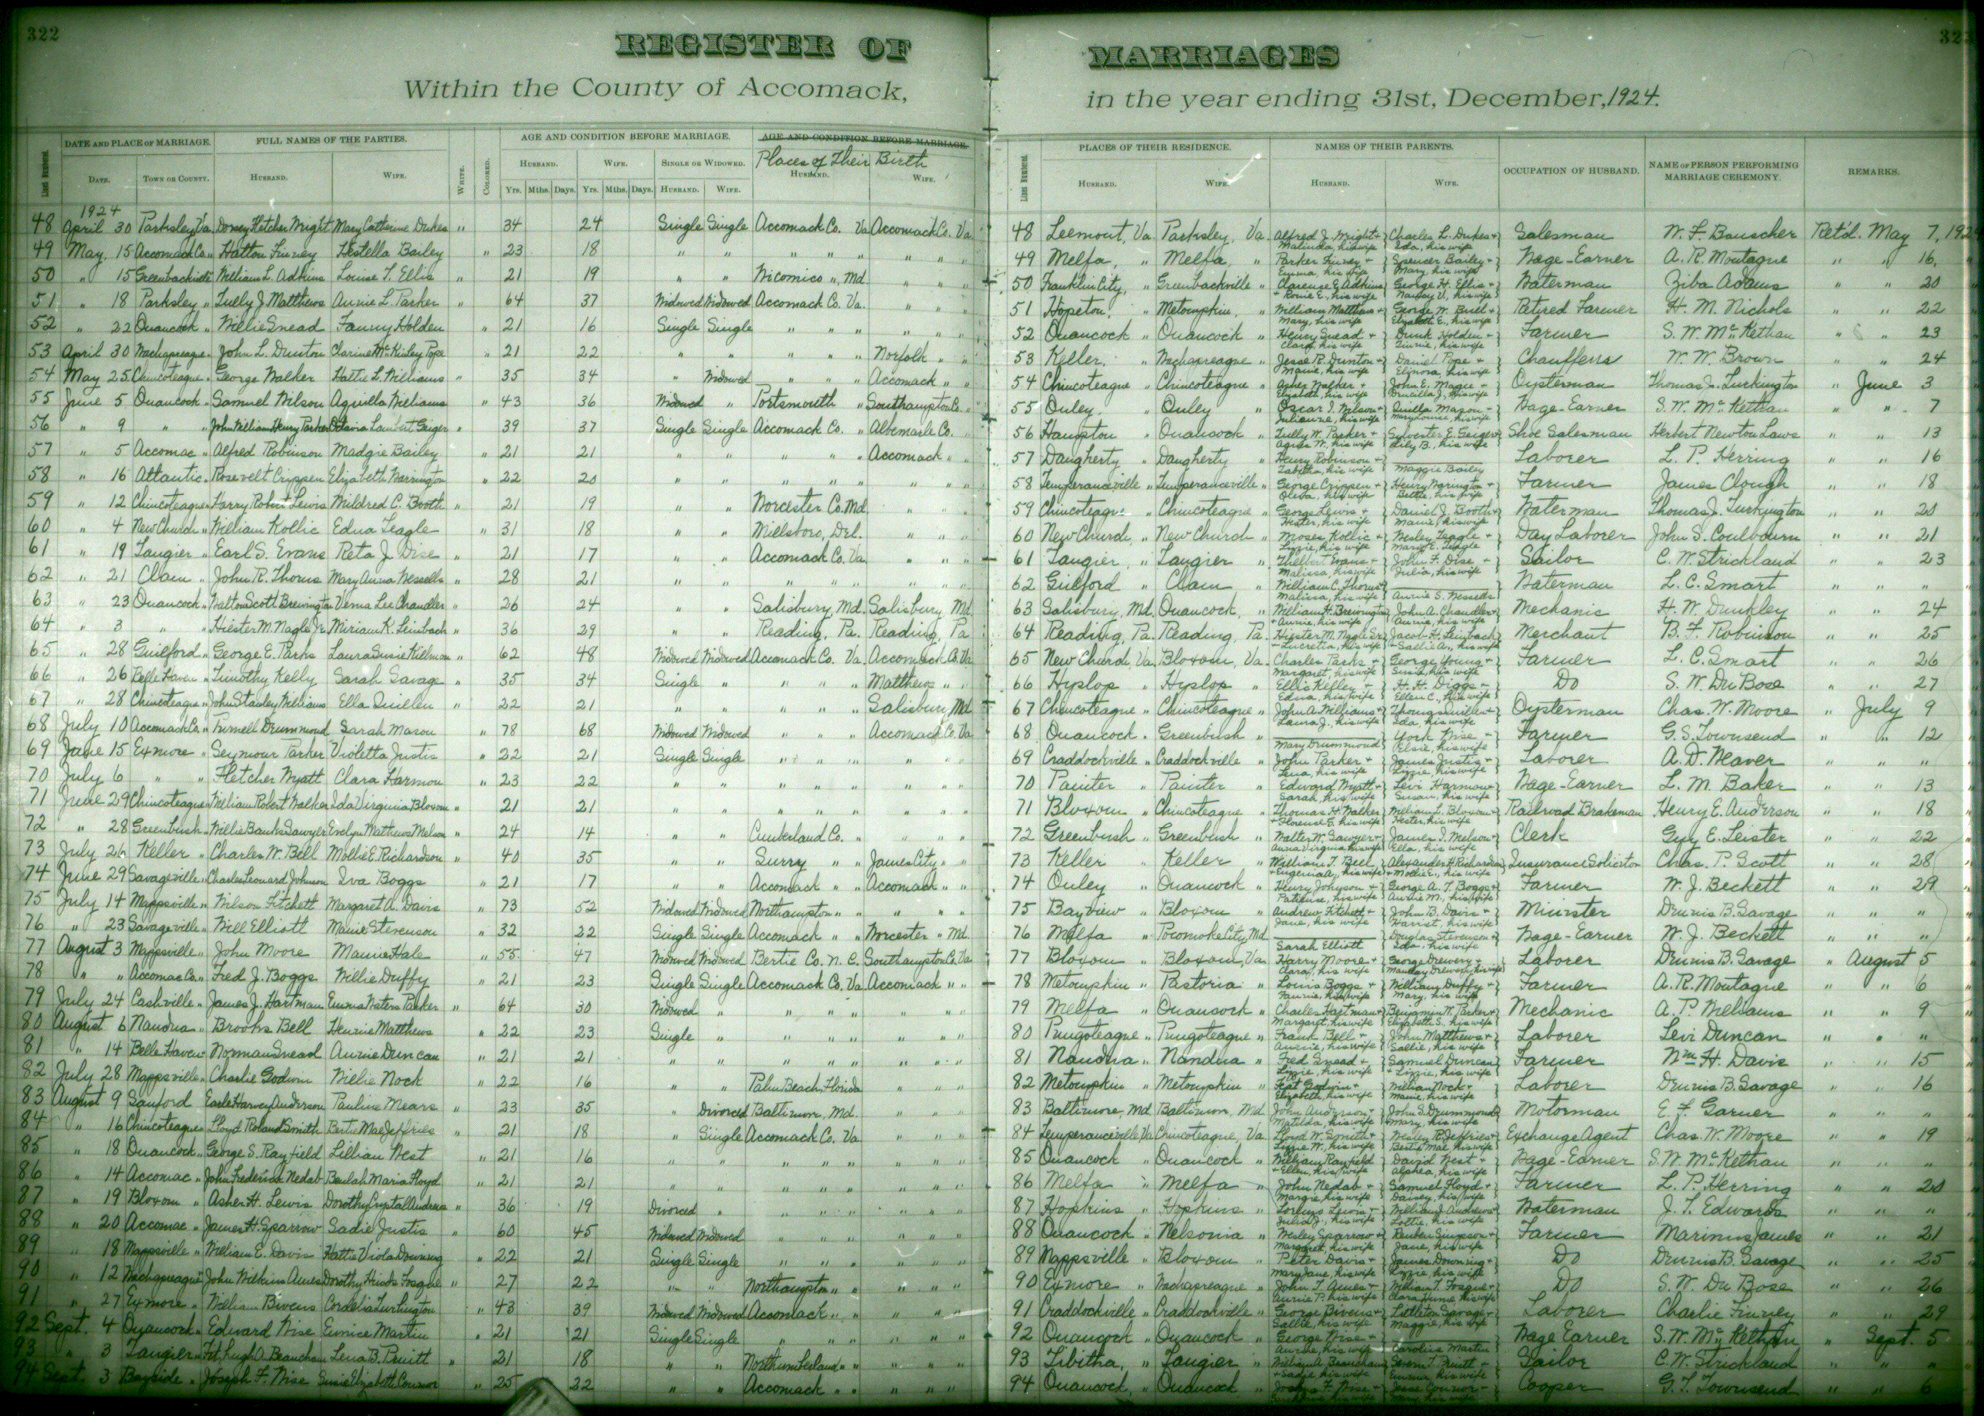 322
REGISTER OF MARRIAGES
323
Within the County of Accomack, in the year ending 31st, December, 1924.
LINE NUMBER. DATE AND PLACE OF MARRIAGE. FULL NAMES OF THE PARTIES. WHITE. COLORED. AGE AND CONDITION BEFORE MARRIAGE. AGE AND CONDITION BEFORE MARRIAGE. LINE NUMBER. PLACES OF THEIR RESIDENCE. NAMES OF THEIR PARENTS. OCCUPATION OF HUSBAND. NAME OF PERSON PERFORMING MARRIAGE CEREMONY. REMARKS.
Places of Their Birth
DATE. TOWN OR COUNTY. HUSBAND. WIFE. HUSBAND. WIFE. SINGLE OR WIDOWED. HUSBAND. WIFE. HUSBAND. WIFE. HUSBAND. WIFE.
Yrs. Mths. Days. Yrs. Mths. Days. HUSBAND. WIFE.
1924
48 April 30 Parksley, Va. Dorsey Fletcher Wright Mary Catherine Dukes " 34 24 Single Single Accomack Co. Va. Accomack Co. Va. 48 Leemont, Va. Parksley, Va. Alfred J. Wright + Malinda, his wife Charles L. Dukes + Ida, his wife Salesman W. F. Bauscher Ret'd. May 7, 1924
49 May 15 Accomack Co. Hatton Finney Estella Bailey " 23 18 " " " " 49 Melfa, " Melfa, " Parker Finney + Emma, his wife Spencer Bailey + Mary, his wife Wage-Earner A. R. Montague " " 16,
50 " 15 Greenbackville William L. Adkins Louise T. Ellis " 21 19 " " Wicomico ", Md. " " 50 Franklin City, " Greenbackville " Clarence E. Adkins + George H. Ellis + Waterman Ziba Adams " " 20
51 " 18 Parksley " Tully J. Matthews Annie L. Parker " 64 37 Widowed Widowed Accomack Co. Va. " " 51 Hopeton, " Metompkin, " William Matthews + Mary, his wife George W. Bull + Elizabeth E., his wife Retired Farmer H. M. Nichols " " 22
52 " 22 Onancock " Willie Snead Fanny Holden " 21 16 Single Single " " " " 52 Onancock " Onancock " Henry Snead + Clara, his wife Holden + his wife Farmer S. W. McKethan " " 23
53 April 30 Wachapreague " John L. Dunton Clarine McKinley Pope 21 22 " " " " Norfolk " 53 Keller, " Wachapreague " Jesse R. Dunton + Mamie, his wife Daniel Pope + Elinora, his wife Chauffeur W. W. Brown " " 24
54 May 25 Chincoteague " George Walker Hattie L. Williams " 35 34 " Widowed " " Accomack " 54 Chincoteague " Chincoteague " Asher Walker + Elizabeth, his wife John E. Magee + his wife Oysterman Thomas J. Turkington " June 3
55 June 5 Onancock " Samuel Wilson Aquilla Williams " 43 36 Widowed " Portsmouth " Southampton Co. " 55 Onley, " Onley " Oscar J. Wilson + his wife Mason + his wife Wage-Earner S. W. McKethan " " 7
56 " 9 " " John William Henry Parker Octavia Lambert Geiger " 39 37 Single Single Accomack Co. " Albemarle Co. 56 Hampton " Onancock " Tully W. Parker + his wife Sylvester E. Geiger + Lily B., his wife Shoe Salesman Herbert Newton Laws " " 13
57 " 5 Accomac " Alfred Robinson Madgie Bailey " 21 21 " " " " Accomack " 57 Daugherty " Daugherty " Henry Robinson + Tabitha, his wife Maggie Bailey Laborer L. P. Herring " " 16
58 " 16 Atlantic " Rosevelt Crippen Elizabeth Warrington " 22 20 " " " " " 58 Temperanceville " Temperanceville " George Crippen + Oleva, his wife Henry Warrington + Bettie, his wife Farmer James Clough " " 18
59 " 12 Chincoteague " Harry Robert Lewis Mildred C. Booth " 21 19 " " Worcester Co. Md. " " 59 Chincoteague " Chincoteague " George Lewis + Hester, his wife Daniel J. Booth + Mamie, his wife Waterman Thomas J. Turkington " " 20
60 " 4 New Church " William Kollic Edna Teagle " 31 18 " " Millsboro, Del. " " 60 New Church " New Church " Moses Kollic + Lizzie, his wife Wesley Teagle + Mary E. Teagle Day Laborer John S. Coulbourn " " 21
61 " 19 Tangier " Earl S. Evans Reta J. Dise " 21 17 " " Accomack Co. Va. " " 61 Tangier, " Tangier " Evans + Malissa, his wife John F. Dise + Julia, his wife Sailor C. W. Strickland " " 23
62 " 21 Clam " John R. Thorns Mary Anna Wessells " 28 21 " " " " " 62 Guilford " Clam " William C. Thorns + Malissa, his wife Annie S. Wessells Waterman L. C. Smart " " "
63 " 23 Onancock " Walton Scott Brewington Verna Lee Chandler " 26 24 " " Salisbury, Md. Salisbury, Md. 63 Salisbury, Md. Onancock, " William H. Brewington + Annie, his wife John A. Chandler + Annie, his wife Mechanic H. W. Dunkley " " 24
64 " 3 " " Hiester M. Nagle Jr. Miriam K. Leinbach " 36 29 " " Reading, Pa. Reading, Pa 64 Reading, Pa. Reading, Pa. Hiester M. Nagle Sr. + Lucretia, his wife Jacob H. Leinbach + Sallie A., his wife Merchant B. F. Robinson " " 25
65 " 28 Guilford " George E. Parks Laura Susie Killmon " 62 48 Widowed Widowed Accomack Co. Va. Accomack Co. Va. 65 New Church, Va. Bloxom, Va. Charles Parks + Margaret, his wife George Young + Susie, his wife Farmer L. C. Smart " " 26
66 " 26 Belle Haven " Timothy Kelly Sarah Savage " 35 34 Single " " " Matthews " 66 Hyslop " Hyslop " Ellis Kelley + Edna, his wife H. H. Diggs + Ellen C., his wife Do S. W. Du Bose " " 27
67 " 28 Chincoteague " John Stanley Williams Ella Quillen " 22 21 " " " " Salisbury, Md. 67 Chincoteague " Chincoteague " John A. Williams + Laura J., his wife Thomas Quillen + Ida, his wife Oysterman Chas. W. Moore " July 9
68 July 10 Accomack Co. " Drummond Sarah Mason " 78 68 Widowed Widowed " " Accomack Co. Va. 68 Onancock " Greenbush " Mary Drummond York Wise + Elsie, his wife Farmer G. S. Townsend " " 12
69 June 15 Exmore " Seymour Parker Violetta Justis " 22 21 Single Single " " " " 69 Craddockville " Craddockville " John Parker + Lena, his wife James Justis + Lizzie, his wife Laborer A. D. Weaver " " "
70 July 6 " " Fletcher Wyatt Clara Harmon " 23 22 " " " " " 70 Painter " Painter " Edward Wyatt + Sarah, his wife Levi Harmon + Susan, his wife Wage-Earner L. M. Baker " " 13
71 June 29 Chincoteague " William Robert Walker Ida Virginia Bloxom " 21 21 " " " " " 71 Bloxom " Chincoteague " Thomas H. Walker + Florence E., his wife William L. Bloxom + Hester, his wife Railroad Brakeman Henry E. Anderson " " 18
72 " 28 Greenbush " Willie Banks Sawyer Evelyn Mathews Melson " 24 14 " " Cumberland Co. " " 72 Greenbush " Greenbush " Walter W. Sawyer + Anna Virginia his wife James T. Melson + Ella, his wife Clerk Guy E. Leister " " 22
73 July 26 Keller " Charles W. Bell Mollie E. Richardson " 40 35 " " Surry " " James City " " 73 Keller " Keller " William T. Bell + Eugenia A., his wife Alexander H. Richardson + Mollie E., his wife Insurance Solicitor Chas. P. Scott " " 28
74 June 29 Savageville " Charles Leonard Johnson Iva Boggs " 21 17 " " Accomack " " Accomack " " 74 Onley " Onancock " Henry Johnson + Patience, his wife George A. T. Boggs + Austie M., his wife Farmer W. J. Beckett " " 29
75 July 14 Mappsville " Wilson Fitchett Margaret A. Davis " 73 52 Widowed Widowed Northampton " " " " 75 Bayview " Bloxom " Andrew Fitchett + Jane, his wife John B. Davis + Harriet, his wife Minister Dennis B. Savage " " "
76 " 23 Savageville " Will Elliott Mamie Stevenson " 32 22 Single Single Accomack " " Worcester " Md. 76 Melfa " Pocomoke City, Md. Sarah Elliott Douglas Stevenson + Ida, his wife Wage-Earner W. J. Beckett " " "
77 August 3 Mappsville " John Moore Mamie Hale " 55 47 Widowed Widowed Bertie Co. N. C. Southampton Co. Va. 77 Bloxom " Bloxom, Va. Harry Moore + Clara, his wife George Drewery + Manday Drewery, his wife Laborer Dennis B. Savage " August 5
78 " " Accomac Co. " Fred J. Boggs Willie Duffy " 21 23 Single Single Accomack Co. Va. Accomack " " 78 Metompkin " Pastoria " Louis Boggs + Fannie, his wife William Duffy + Mary, his wife Farmer A. R. Montague " " 6
79 July 24 Cashville " James J. Hartman Emma Waters Parker " 64 30 Widowed " " " " 79 Melfa " Onancock " Charles Hartman + Margaret, his wife Benjamin W. Parker + Elizabeth S., his wife Mechanic A. P. Williams " " 9
80 August 6 Nandua " Brooks Bell Hennie Matthews " 22 23 Single " " " " 80 Pungoteague " Pungoteague " Frank Bell + Annie, his wife John Matthews + Sallie, his wife Laborer Levi Duncan " " "
81 " 14 Belle Haven " Norman Snead Annie Duncan " 21 21 " " " " " 81 Nandua " Nandua " Fred Snead + Lizzie, his wife Samuel Duncan + Lizzie, his wife Farmer Wm. H. Davis " " 15
82 July 28 Mappsville " Charlie Godwin Willie Nock " 22 16 " " Palm Beach, Florida " " 82 Metompkin " Metompkin " Godwin + Elizabeth, his wife William Nock + Mamie, his wife Laborer Dennis B. Savage " " 16
83 August 9 Sanford " Earle Harvey Anderson Pauline Mears " 23 35 " Divorced Baltimore, Md. " " 83 Baltimore, Md. Baltimore, Md. John Anderson + Matilda, his wife John S. Drummond + Mary, his wife Motorman E. F. Garner " " "
84 " 16 Chincoteague " Lloyd Roland Smith Bertie Mae Jeffries " 21 18 " Single Accomack Co. Va. " " 84 Temperanceville Va. Chincoteague, Va. Lloyd W. Smith + Lizzie W., his wife Wesley R. Jeffries + Bertie Mae, his wife Exchange Agent Chas. W. Moore " " 19
85 " 18 Onancock " George S. Rayfield Lillian West " 21 16 " " " " " 85 Onancock " Onancock " William Rayfield + Ellen, his wife David West + his wife Wage-Earner S. W. McKethan " " "
86 " 14 Accomac " John Frederick Nedab Beulah Maria Floyd " 21 21 " " " " " 86 Melfa " Melfa " John Nedab + Margie, his wife Samuel Floyd + Daisey, his wife Farmer L. P. Herring " " 20
87 " 19 Bloxom " Asher H. Lewis Dorothy Crystal Andrews " 36 19 Divorced " " " " 87 Hopkins " Hopkins " Lorenzo Lewis + Julia J., his wife William J. Andrews + Lottie, his wife Waterman J. T. Edwards " " "
88 " 20 Accomac " James H. Sparrow Sadie Justis " 60 45 Widowed Widowed " " " " 88 Onancock " Nelsonia " Wesley Sparrow + Margaret, his wife Reuben Simpson + Jane, his wife Farmer Marinus James " " 21
89 " 18 Mappsville " William E. Davis Hattie Viola Downing " 22 21 Single Single " " " " 89 Mappsville " Bloxom " Peter Davis + Mary Jane, his wife James Downing + Lizzie, his wife Do Dennis B. Savage " " 25
90 " 12 Wachapreague " John Wilkins Ames Dorothy Hinds Fosque " 27 22 " " Northampton " " " 90 Exmore " Wachapreague " John T. Ames + Annie P., his wife William T. Fosque + Clara Hume, his wife Do S. W. Du Bose " " 26
91 " 27 Exmore " William Bivens Cordelia Turlington " 43 39 Widowed Widowed Accomack " " " 91 Craddockville " Craddockville " George Bivens + Sallie, his wife Littleton Savage + Maggie, his wife Laborer Charlie Finney " " 29
92 Sept. 4 Onancock " Edward Wise Eunice Martin " 21 21 Single Single " " " " 92 Onancock " Onancock " George Wise + Annie, his wife Carolina Martin Wage Earner S. W. McKethan " Sept. 5
93 " 3 Tangier " Fitzhugh A. Beaucham Lena B. Pruitt " 21 18 " " Northumberland " " " 93 Tibitha, " Tangier " William A. Beaucham + Sadie, his wife Severn T. Pruitt + Emma, his wife Sailor C. W. Strickland " " "
94 Sept. 3 Bayside " Joseph F. Wise Susie Elizabeth Connor " 25 22 " " Accomack " " " 94 Onancock, " Onancock " Joshua F. Wise + Jesse Connor + Cooper G. T. Townsend " " 6